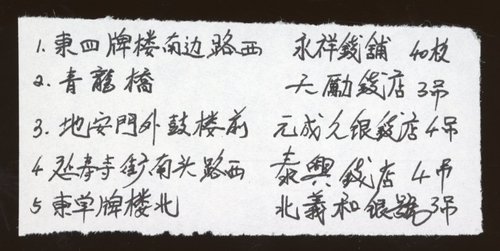 1. 東四牌楼南边路西 永祥錢舖 40枚
2. 青龍橋 天勵錢店 3吊
3. 地安門外鼓楼前 元成允银錢店 4吊
4 延寿寺街南头路西 泰興錢店 4吊
5 東单牌楼北 北義和银號 3吊